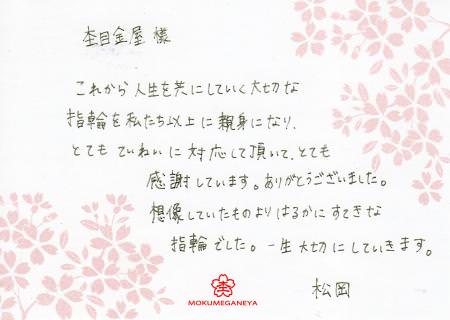 杢目金屋 様
これから人生を共にしていく大切な
指輪を私たち以上に親身になり、
とてもていねいに対応して頂いて、とても
感謝しています。ありがとうございました。
想像していたものよりはるかにすてきな
指輪でした。一生大切にしていきます。
杢
MOKUMEGANEYA
松岡